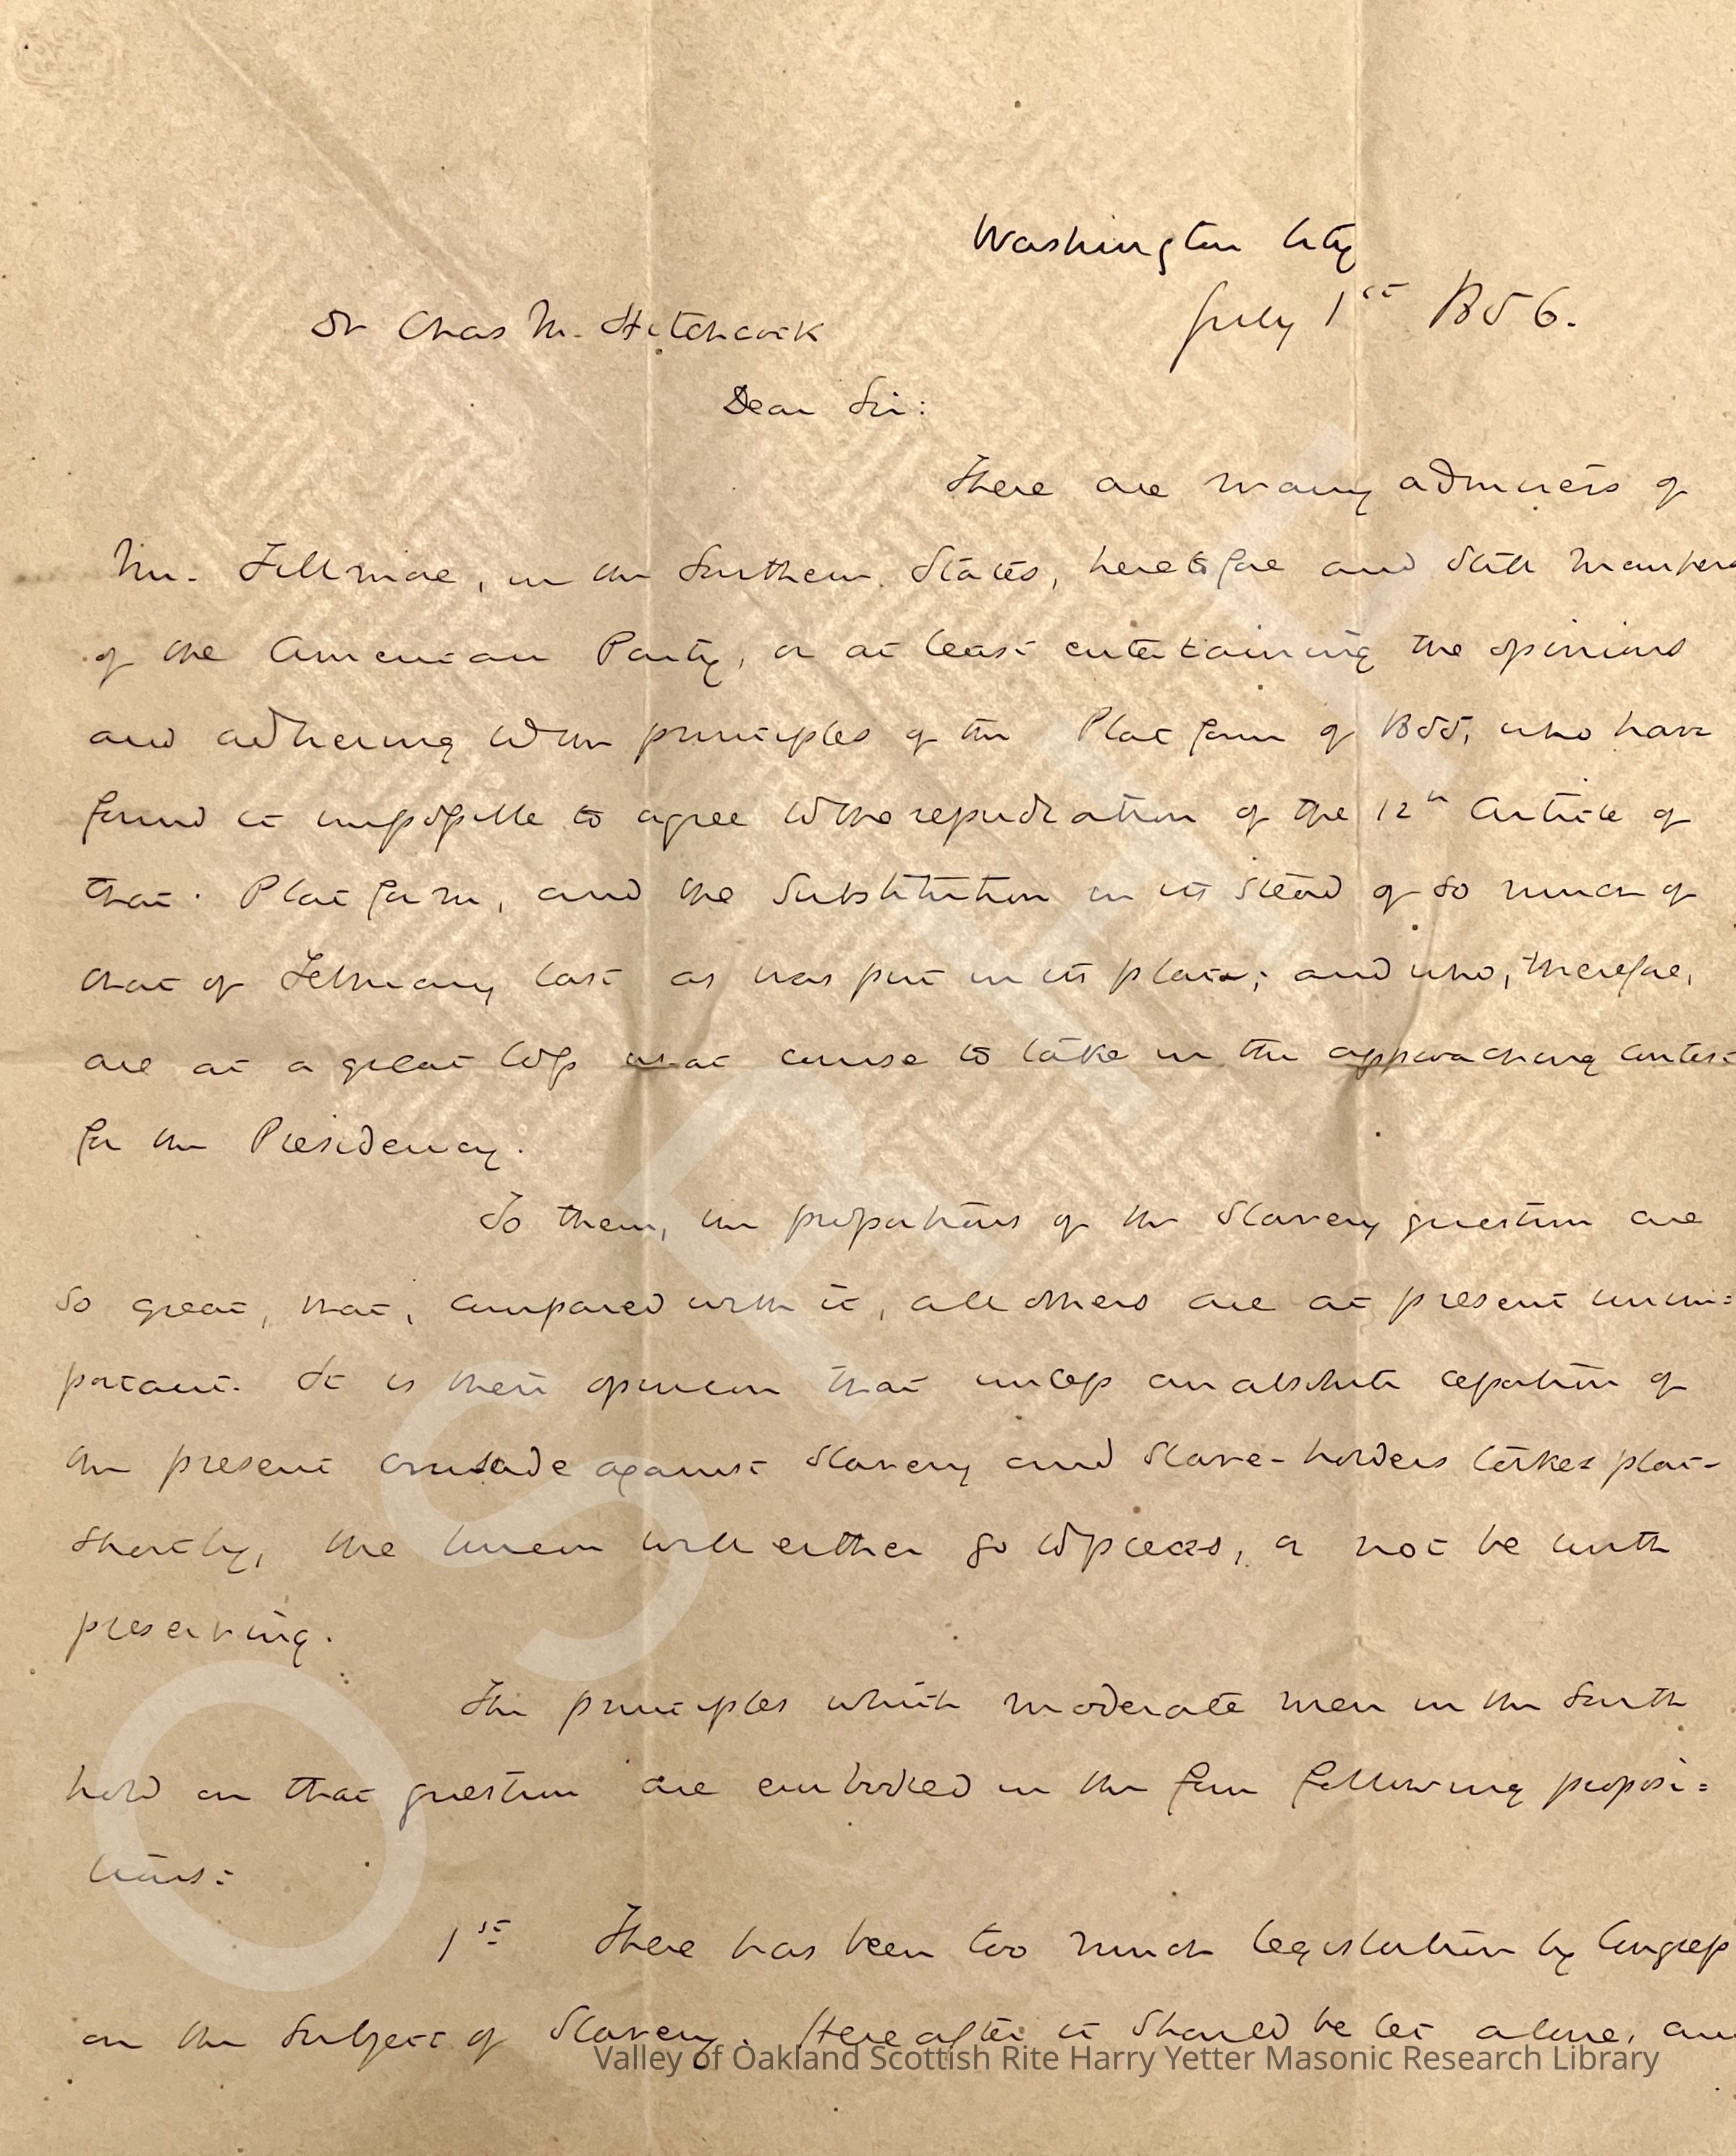 Washington City
July 1st 1856.
Dr Chas M. Hitchcock
Dear Sir:
There are many admirers of
Mr. Fillmore, in the Southern States, heretofore and still members
of the American Party, or at least entertaining the opinions
and adhering to the principles of the Platform of 1855, who have
found it impossible to agree to the repudiation of the 12th Article of
that Platform, and the substitution in its stead of so much of
that of February last as was put in its place; and who, therefore,
are at a great loss what course to take in the approaching contest
for the Presidency.
To them, the proportions of the Slavery question are
so great, that, compared with it, all others are at present unim=
portant. It is their opinion that unless an absolute cessation of
the present crusade against Slavery and Slave-holders takes place
shortly, the Union will either go to pieces, or not be worth
preserving.
The principles which moderate men in the South
hold on that question are embodied in the four following proposi=
tions:
1st There has been too much legislation by Congress
on the subject of Slavery. Hereafter it should be let alone, and
Valley of Oakland Scottish Rite Harry Yetter Masonic Research Library
OSRHYL